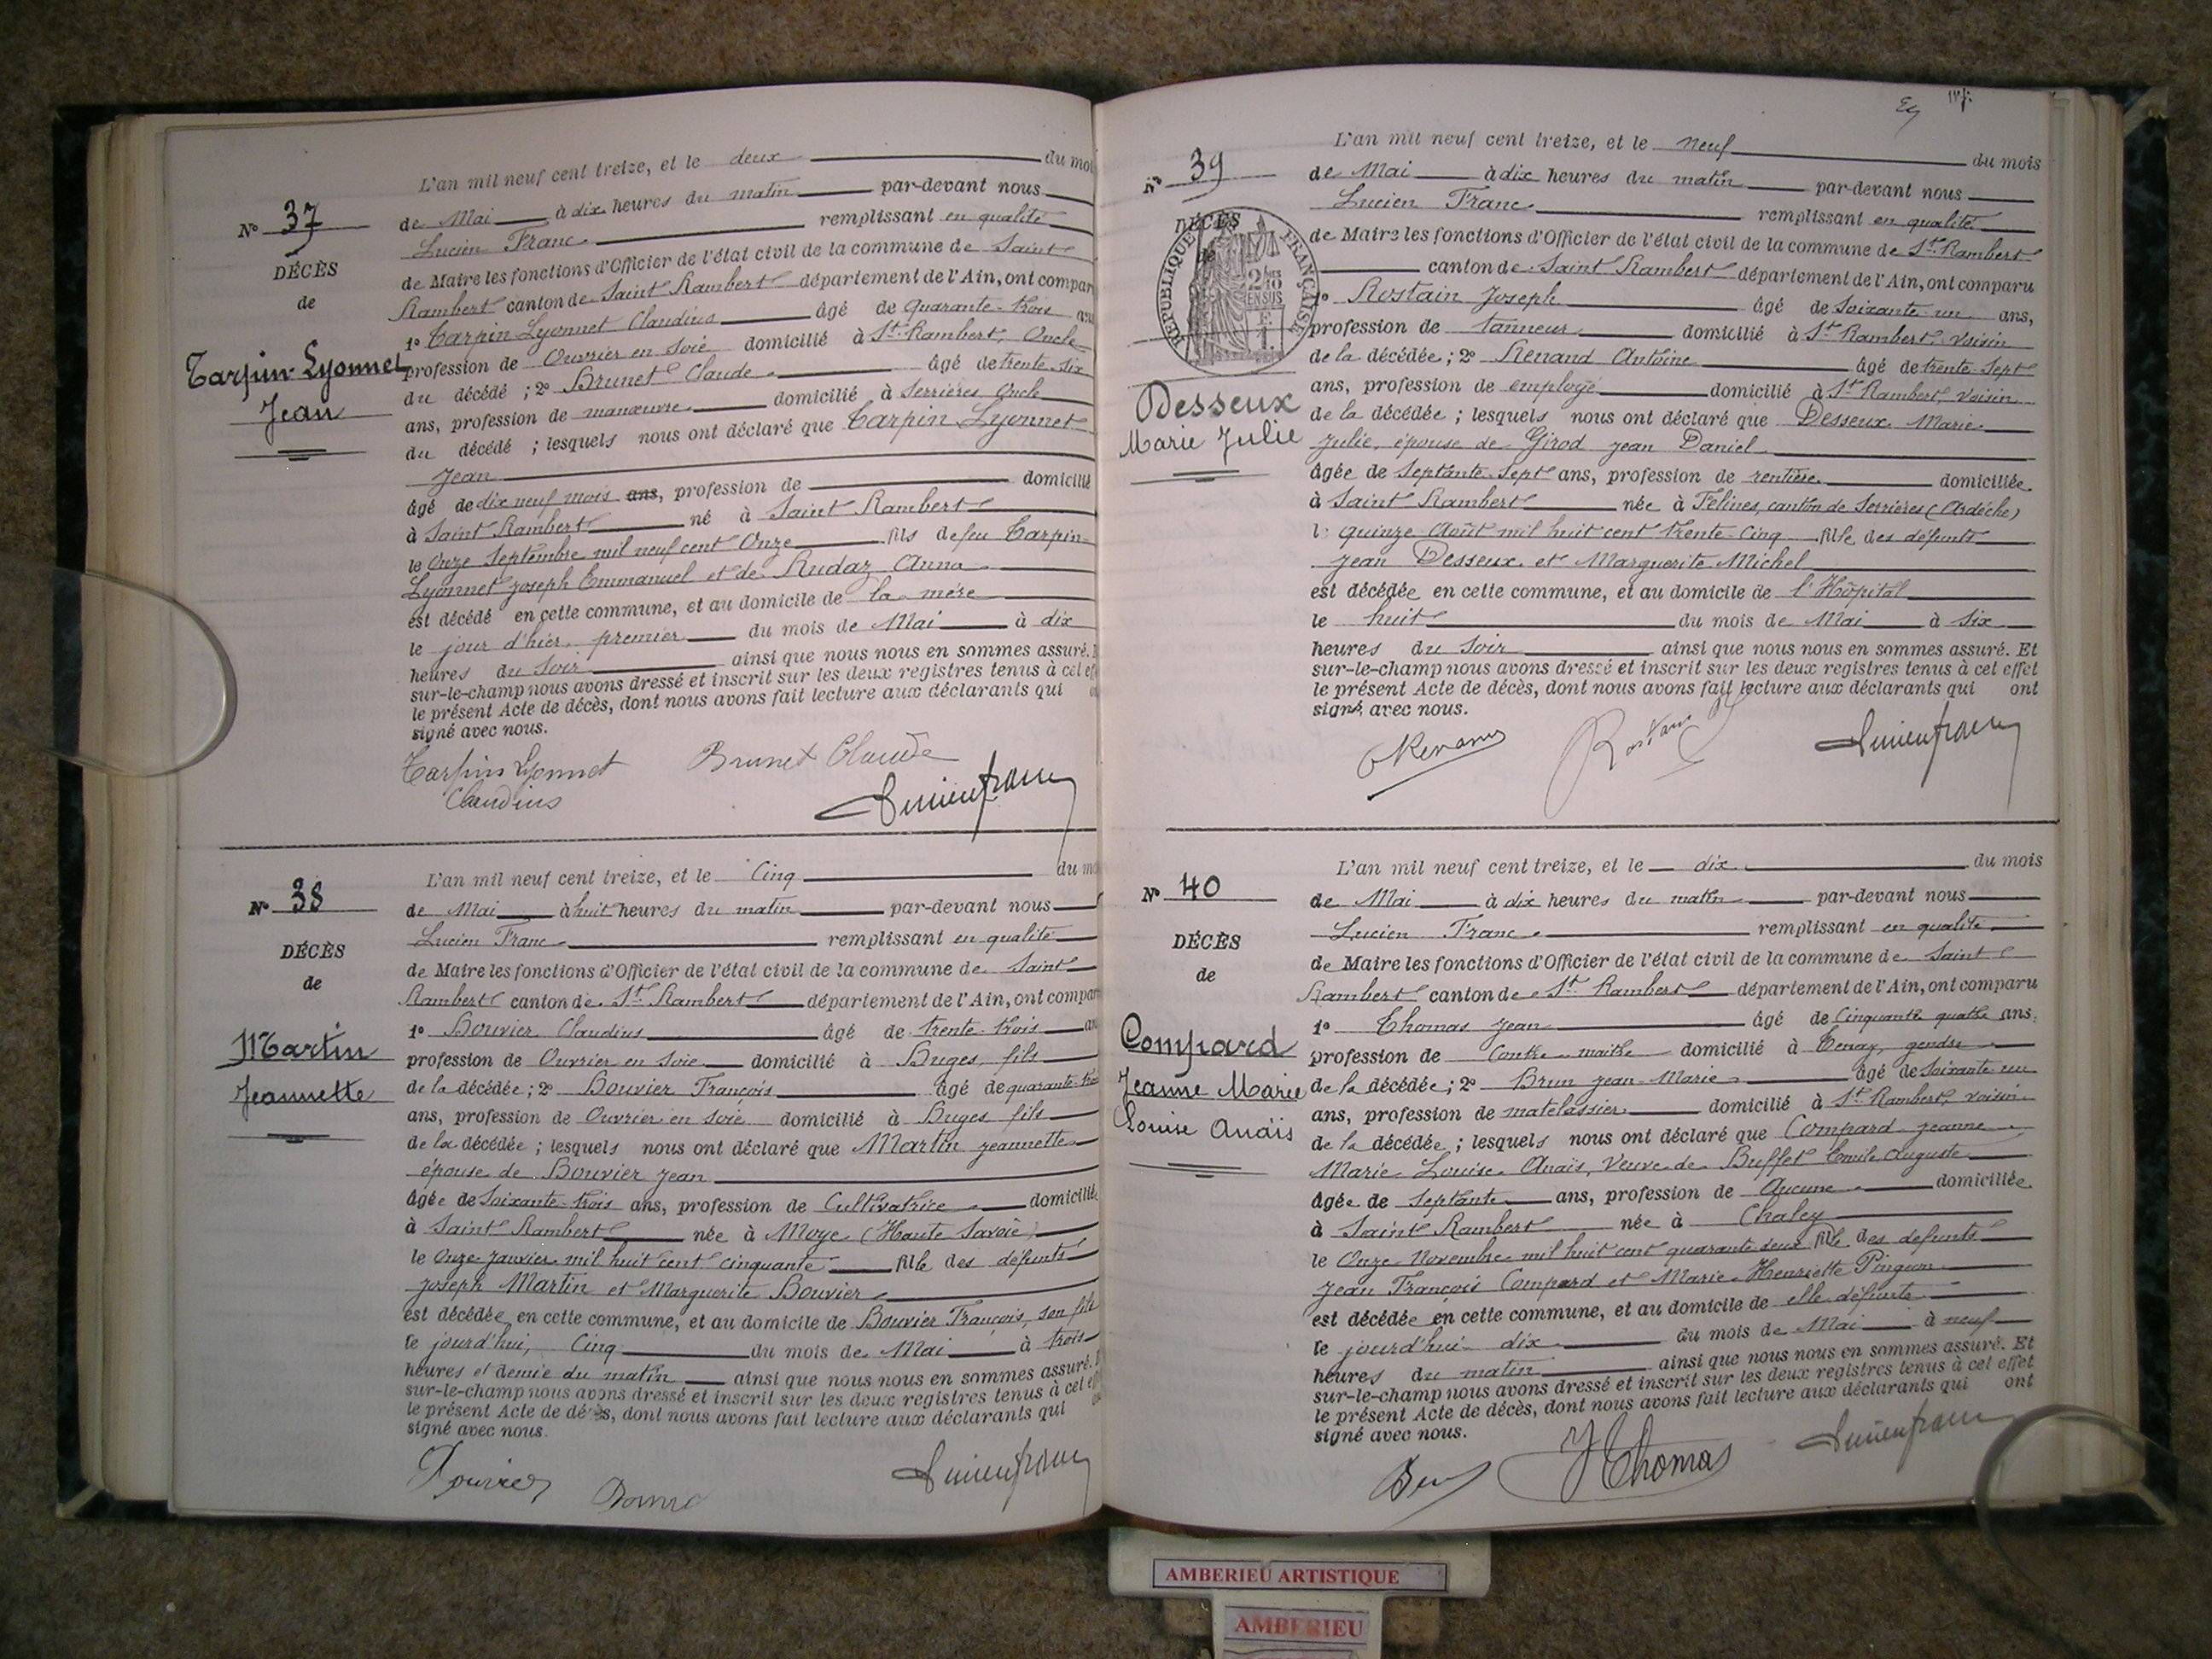 L'an mil neuf cent treize, et le deux du moi
N° 37
de Mai à dix heures du matin par-devant nous
Lucien Franc remplissant en qualité
DÉCÈS
de Maire les fonctions d'Officier de l'état civil de la commune de Saint
de
Rambert canton de Saint Rambert département de l'Ain, ont compar
1° Tarpin-Lyonnet Claudius âgé de quarante-trois an
Tarpin-Lyonnet
Jean
profession de Ouvrier en soie domicilié à St Rambert, Oncle
du décédé ; 2° Brunet Claude âgé de trente-six
ans, profession de manœuvre domicilié à Serrières Oncle
du décédé ; lesquels nous ont déclaré que Tarpin Lyonnet
Jean
âgé de dix neuf mois ans, profession de domicilié
à Saint Rambert né à Saint Rambert
le onze Septembre mil neuf cent Onze fils de feu Tarpin-
Lyonnet Joseph Emmanuel et de Rudaz Anna
est décédé en cette commune, et au domicile de la mère
le jour d'hier, premier du mois de Mai à dix
heures du soir ainsi que nous nous en sommes assuré.
sur-le-champ nous avons dressé et inscrit sur les deux registres tenus à cet ef
le présent Acte de décès, dont nous avons fait lecture aux déclarants qui
signé avec nous.
Tarpin Lyonnet Brunet Claude
Claudius
Lucien franc
L'an mil neuf cent treize, et le Cinq du mo
N° 38
de Mai à huit heures du matin par-devant nous
Lucien Franc remplissant en qualité
DÉCÈS
de Maire les fonctions d'Officier de l'état civil de la commune de Saint
de
Rambert canton de St Rambert département de l'Ain, ont compar
1° Bouvier Claudius âgé de trente-trois an
Martin
Jeannette
profession de Ouvrier en soie domicilié à Buges, fils
de la décédée ; 2° Bouvier François âgé de quarante-
ans, profession de Ouvrier en soie domicilié à Buges fils
de la décédée ; lesquels nous ont déclaré que Martin Jeannette
épouse de Bouvier Jean
âgée de Soixante-trois ans, profession de Cultivatrice domiciliée
à Saint Rambert née à Moye (Haute Savoie)
le Onze Janvier mil huit cent cinquante fille des défunts
Joseph Martin et Marguerite Bouvier
est décédée en cette commune, et au domicile de Bouvier François, son fils
le jourd'hui, Cinq du mois de Mai à trois
heures et demie du matin ainsi que nous nous en sommes assuré.
sur-le-champ nous avons dressé et inscrit sur les deux registres tenus à cet
le présent Acte de décès, dont nous avons fait lecture aux déclarants qui
signé avec nous.
Bouvier Lucien franc
L'an mil neuf cent treize, et le neuf du mois
N° 39
de Mai à dix heures du matin par-devant nous
Lucien Franc remplissant en qualité
DÉCÈS
de
RÉPUBLIQUE FRANÇAISE
de Maire les fonctions d'Officier de l'état civil de la commune de St Rambert
canton de Saint Rambert département de l'Ain, ont comparu
1° Rostain Joseph âgé de Soixante-un ans,
profession de tanneur domicilié à St Rambert, voisin
de la décédée ; 2° Renand Antoine âgé de trente-sept
Desseux
Marie Julie
ans, profession de employé domicilié à St Rambert, voisin
de la décédée ; lesquels nous ont déclaré que Desseux Marie
Julie, épouse de Girod Jean Daniel
âgée de Septante-sept ans, profession de rentière domiciliée
à Saint Rambert née à Felines, canton de Serrières (Ardèche)
le quinze Août mil huit cent trente-cinq fille des défunts
Jean Desseux et Marguerite Michel
est décédée en cette commune, et au domicile de l'Hôpital
le huit du mois de Mai à six
heures du soir ainsi que nous nous en sommes assuré. Et
sur-le-champ nous avons dressé et inscrit sur les deux registres tenus à cet effet
le présent Acte de décès, dont nous avons fait lecture aux déclarants qui ont
signé avec nous.
Renand Rostain Lucien franc
L'an mil neuf cent treize, et le dix du mois
N° 40
de Mai à dix heures du matin par-devant nous
Lucien Franc remplissant en qualité
DÉCÈS
de Maire les fonctions d'Officier de l'état civil de la commune de Saint
de
Rambert canton de St Rambert département de l'Ain, ont comparu
1° Thomas Jean âgé de Cinquante quatre ans,
Compard
Jeanne Marie
Louise Anaïs
profession de Contre-maître domicilié à Tenay, gendre
de la décédée ; 2° Brun Jean-Marie âgé de Soixante un
ans, profession de matelassier domicilié à St Rambert, voisin
de la décédée ; lesquels nous ont déclaré que Compard Jeanne
Marie Louise Anaïs, Veuve de Buffet Emile Auguste
âgée de Septante ans, profession de Aucune domiciliée
à Saint Rambert née à Chaley
le Onze Novembre mil huit cent quarante-deux fille des défunts
Jean François Compard et Marie-Henriette Pingeon
est décédée en cette commune, et au domicile de elle défunte
le jourd'hui dix du mois de Mai à neuf
heures du matin ainsi que nous nous en sommes assuré. Et
sur-le-champ nous avons dressé et inscrit sur les deux registres tenus à cet effet
le présent Acte de décès, dont nous avons fait lecture aux déclarants qui ont
signé avec nous.
JThomas Lucien franc
AMBERIEU ARTISTIQUE
AMBERIEU